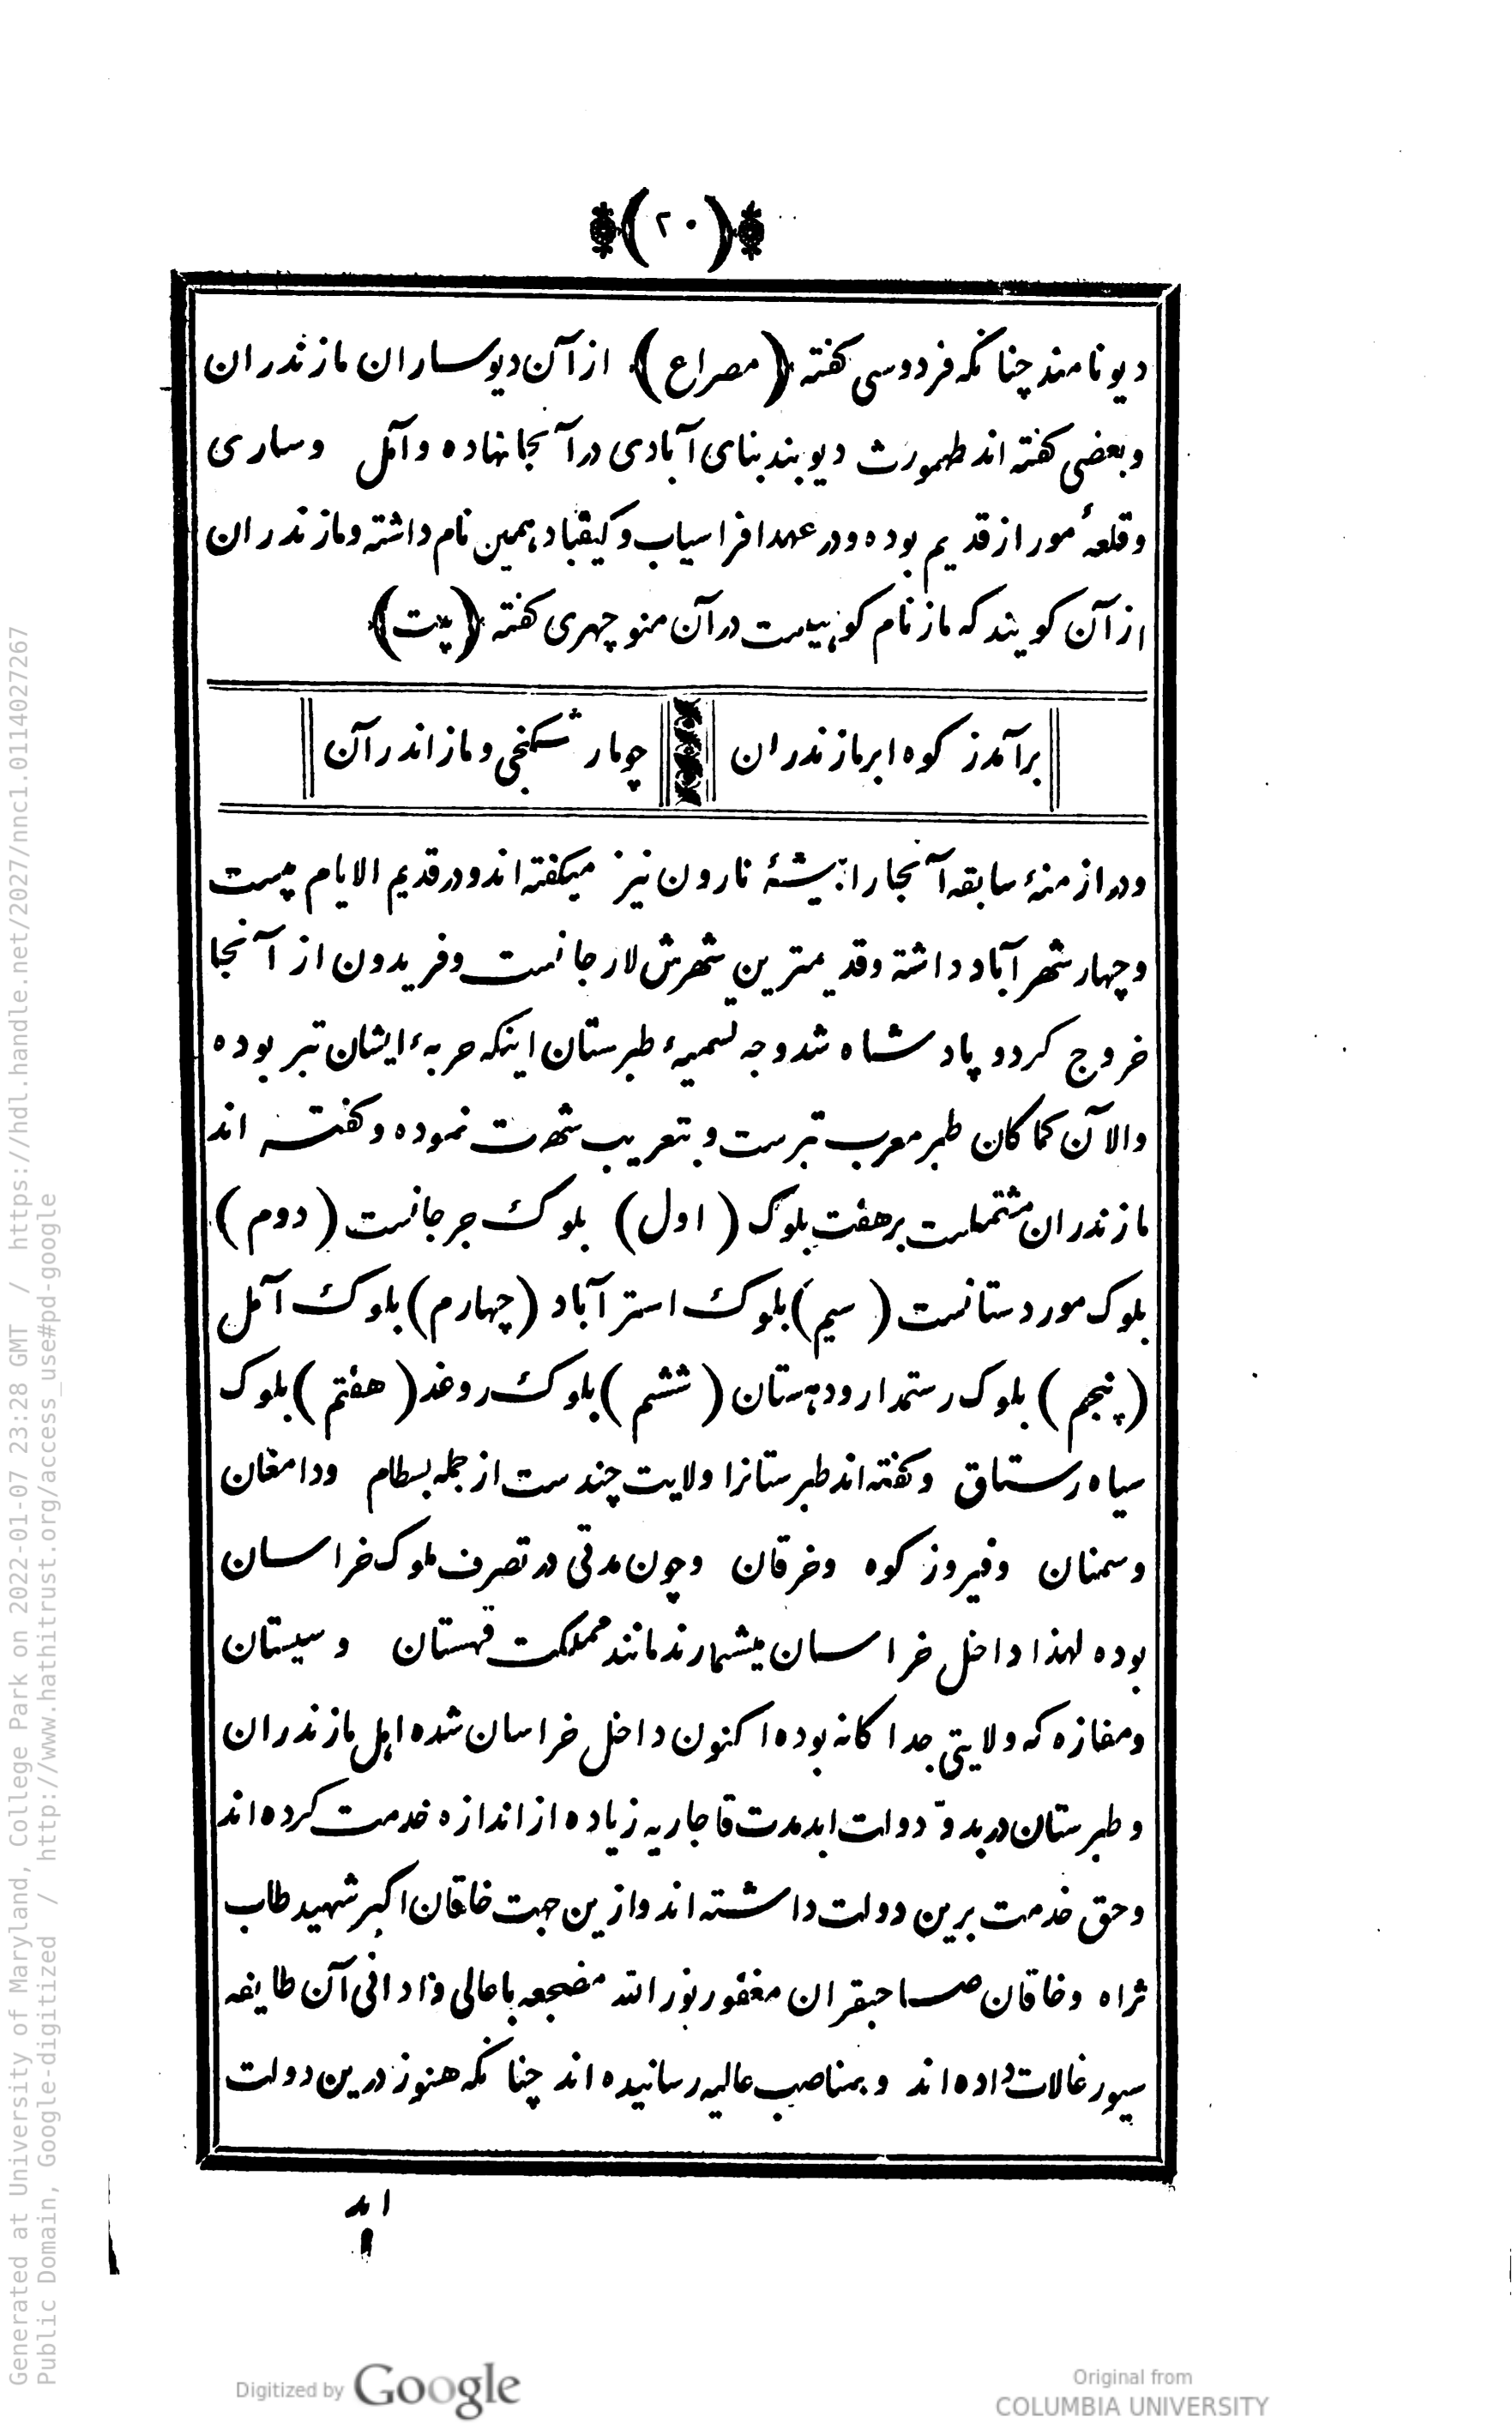 (۲۰)
دیو نامند چنانکه فردوسی کفته (مصراع) از آن دیوساران مازندران
وبعضی کفته اند طهمورث دیوبند بنای آبادی در آنجا نهاده وآمل وساری
وقلعهٔ مور از قدیم بوده ودر عهد افراسیاب وکیقباد همین نام داشته ومازندران
از آن کویند که ماز نام کوهیست در آن منوچهری کفته (بیت)
برآمد ز کوه ابر مازندران چو مار شکنجی وماز اندر آن
ودر ازمنهٔ سابقه آنجارا بیشهٔ نارون نیز میکفته اند ودر قدیم الایام بیست
وچهار شهر آباد داشته وقدیمترین شهرش لارجانست وفریدون از آنجا
خروج کرد و پادشاه شد وجه تسمیهٔ طبرستان اینکه حربهٔ ایشان تبر بوده
والآن کماکان طبر معرب تبرست وبتعریب شهرت نموده وکفته اند
مازندران مشتملست بر هفت بلوک (اول) بلوک جرجانست (دوم)
بلوک موردستانست (سیم) بلوک استرآباد (چهارم) بلوک آمل
(پنجم) بلوک رستمدار ودهستان (ششم) بلوک روغد (هفتم) بلوک
سیاه رستاق وکفته اند طبرستانرا ولایت چندست از جمله بسطام ودامغان
وسمنان وفیروزکوه وخرقان وچون مدتی در تصرف ملوک خراسان
بوده لهذا داخل خراسان میشمارند مانند مملکت قهستان وسیستان
ومفازه که ولایتی جداکانه بوده اکنون داخل خراسان شده اهل مازندران
وطبرستان در بدوّ دولت ابدمدت قاجاریه زیاده از اندازه خدمت کرده اند
وحق خدمت برین دولت داشته اند وازین جهت خاقان اکبر شهید طاب
ثراه وخاقان صاحبقران مغفور نور الله مضجعه باعالی وادانی آن طایفه
سیورغالات داده اند وبمناصب عالیه رسانیده اند چنانکه هنوز درین دولت
ابد
Generated at University of Maryland, College Park on 2022-01-07 23:28 GMT / https://hdl.handle.net/2027/nnc1.0114027267
Public Domain, Google-digitized / http://www.hathitrust.org/access_use#pd-google
Digitized by Google
Original from
COLUMBIA UNIVERSITY